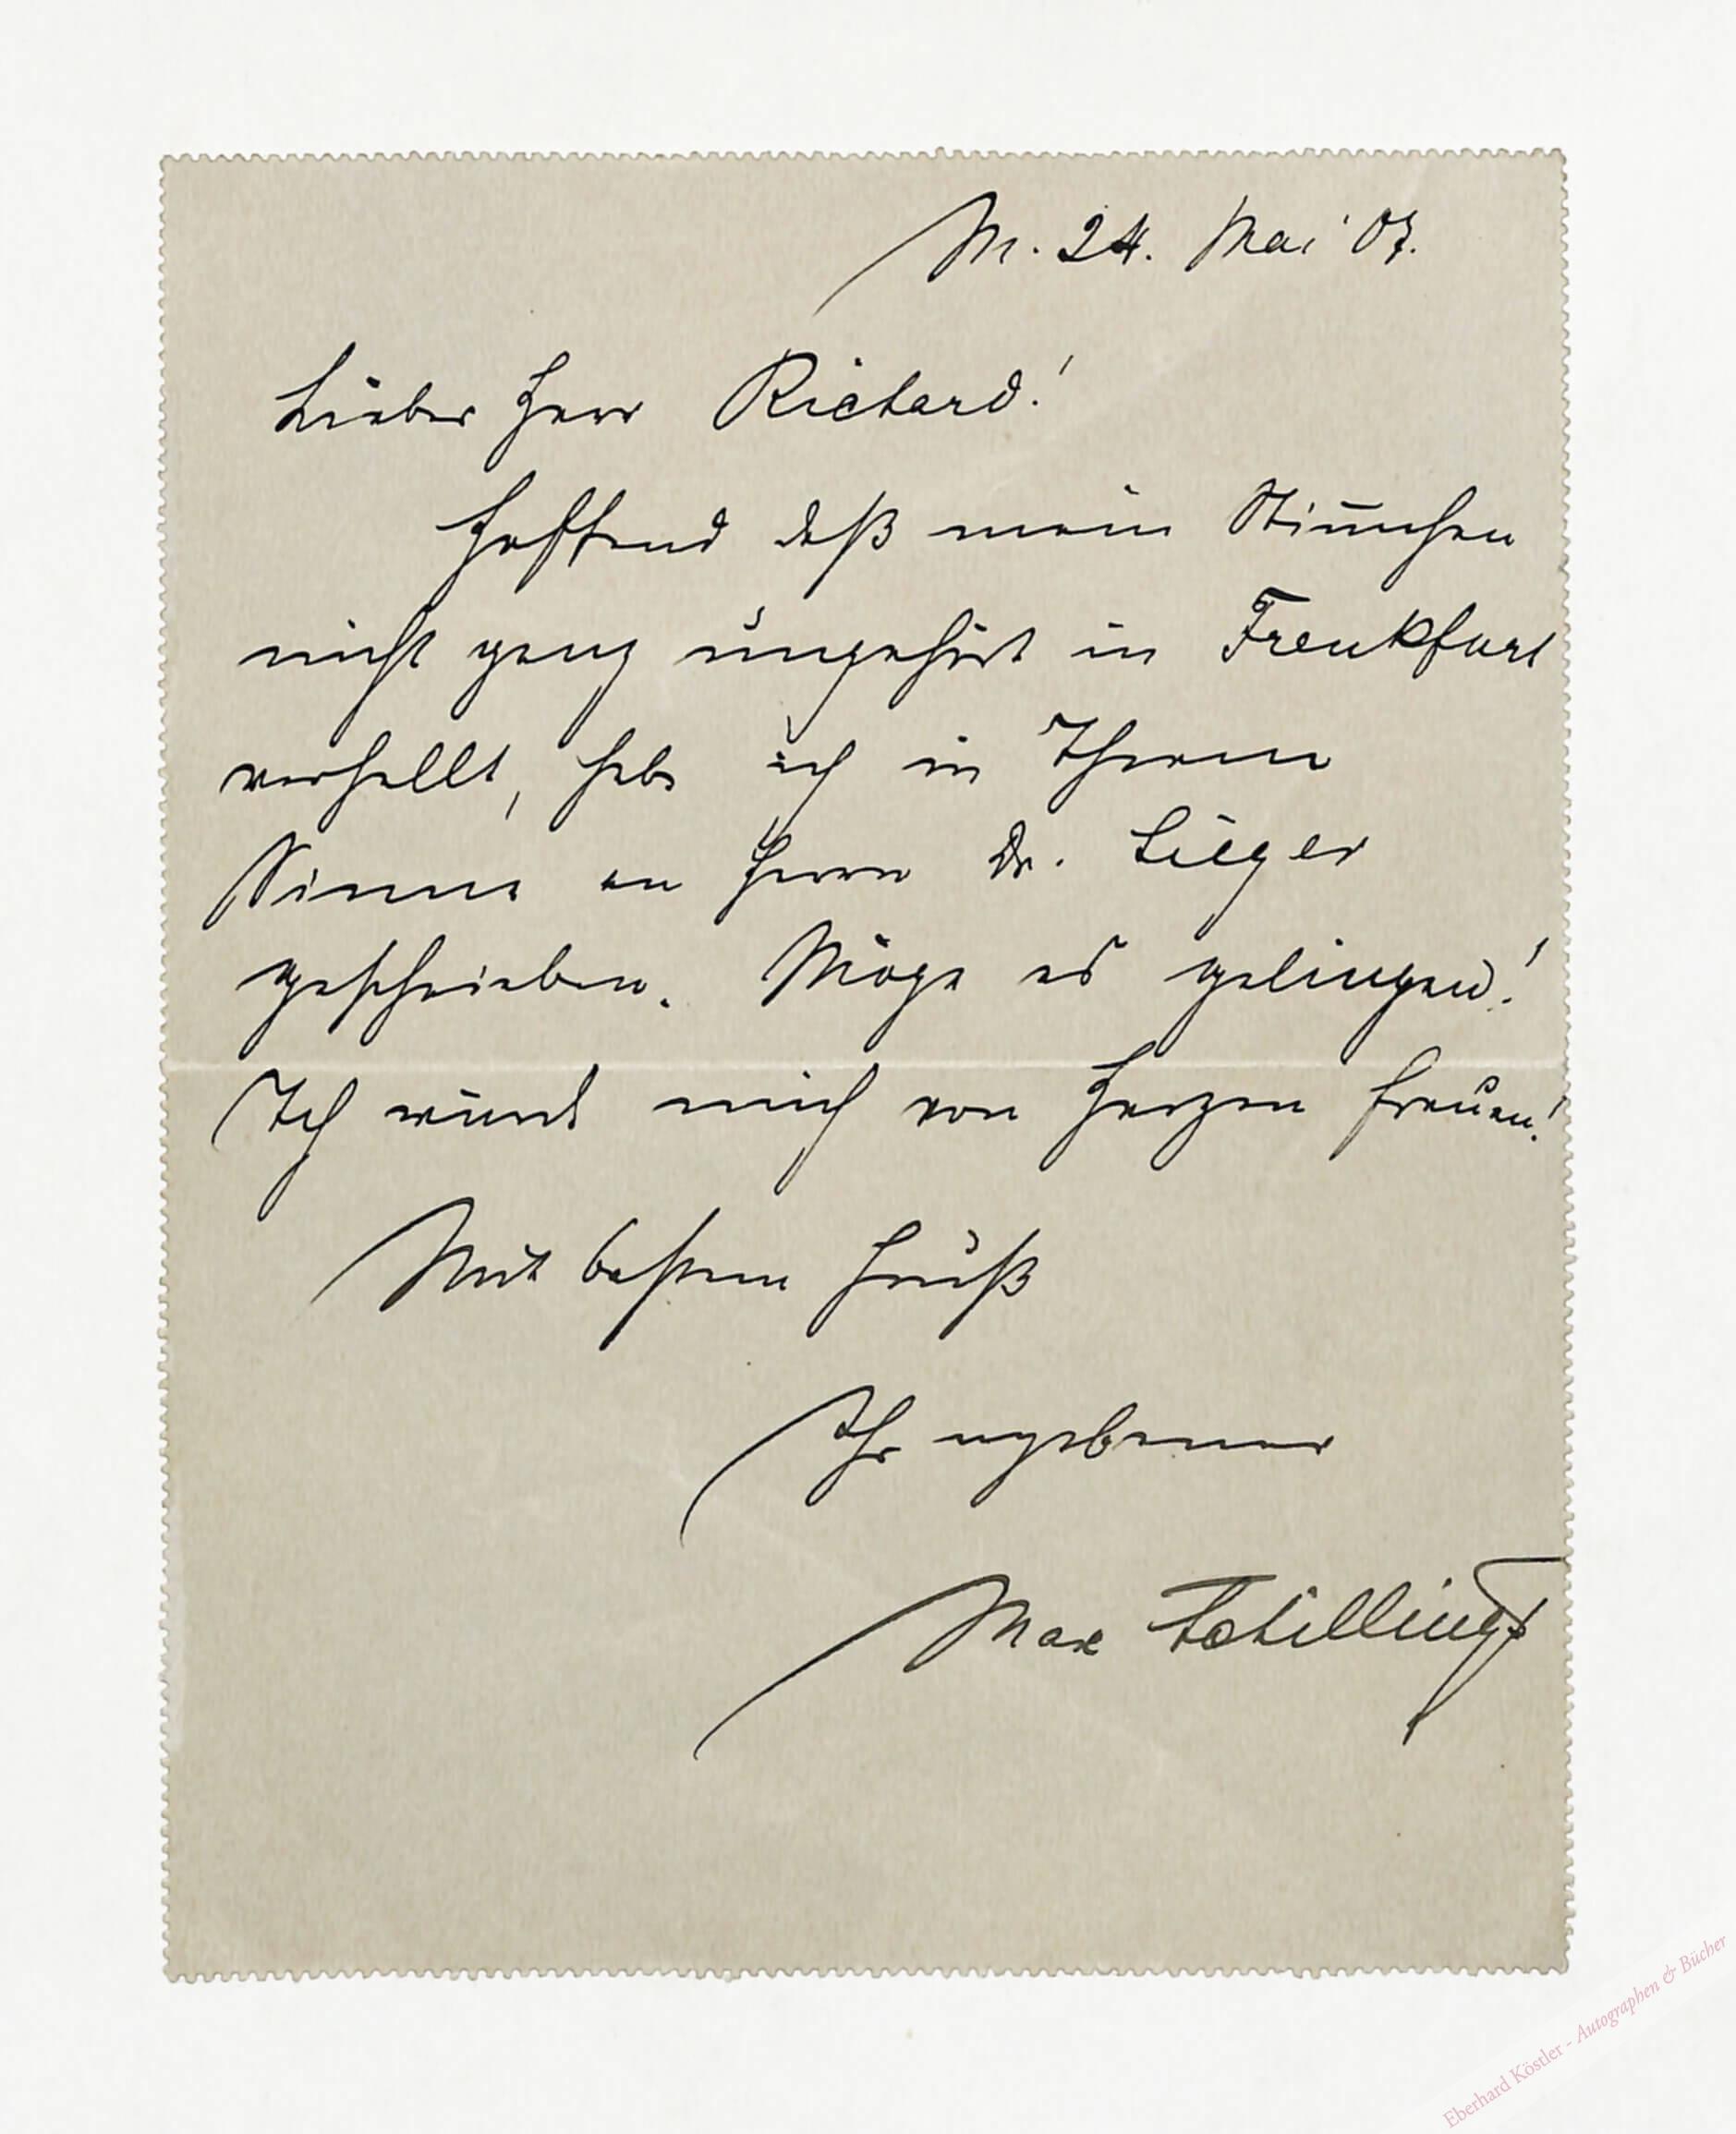 M. 24. Mai 07.
Lieber Herr Richard!
Hoffend daß mein Stimchen
nicht ganz ungehört in Frankfurt
verhallt, habe ich in Ihrem
Sinne an Herrn Dr. Sieger
geschrieben. Möge es gelingen!
Ich würde mich von Herzen freuen!
Mit bestem Gruß
Ihr ergebener
Max Schillings
Eberhard Köstler - Autographen & Bücher